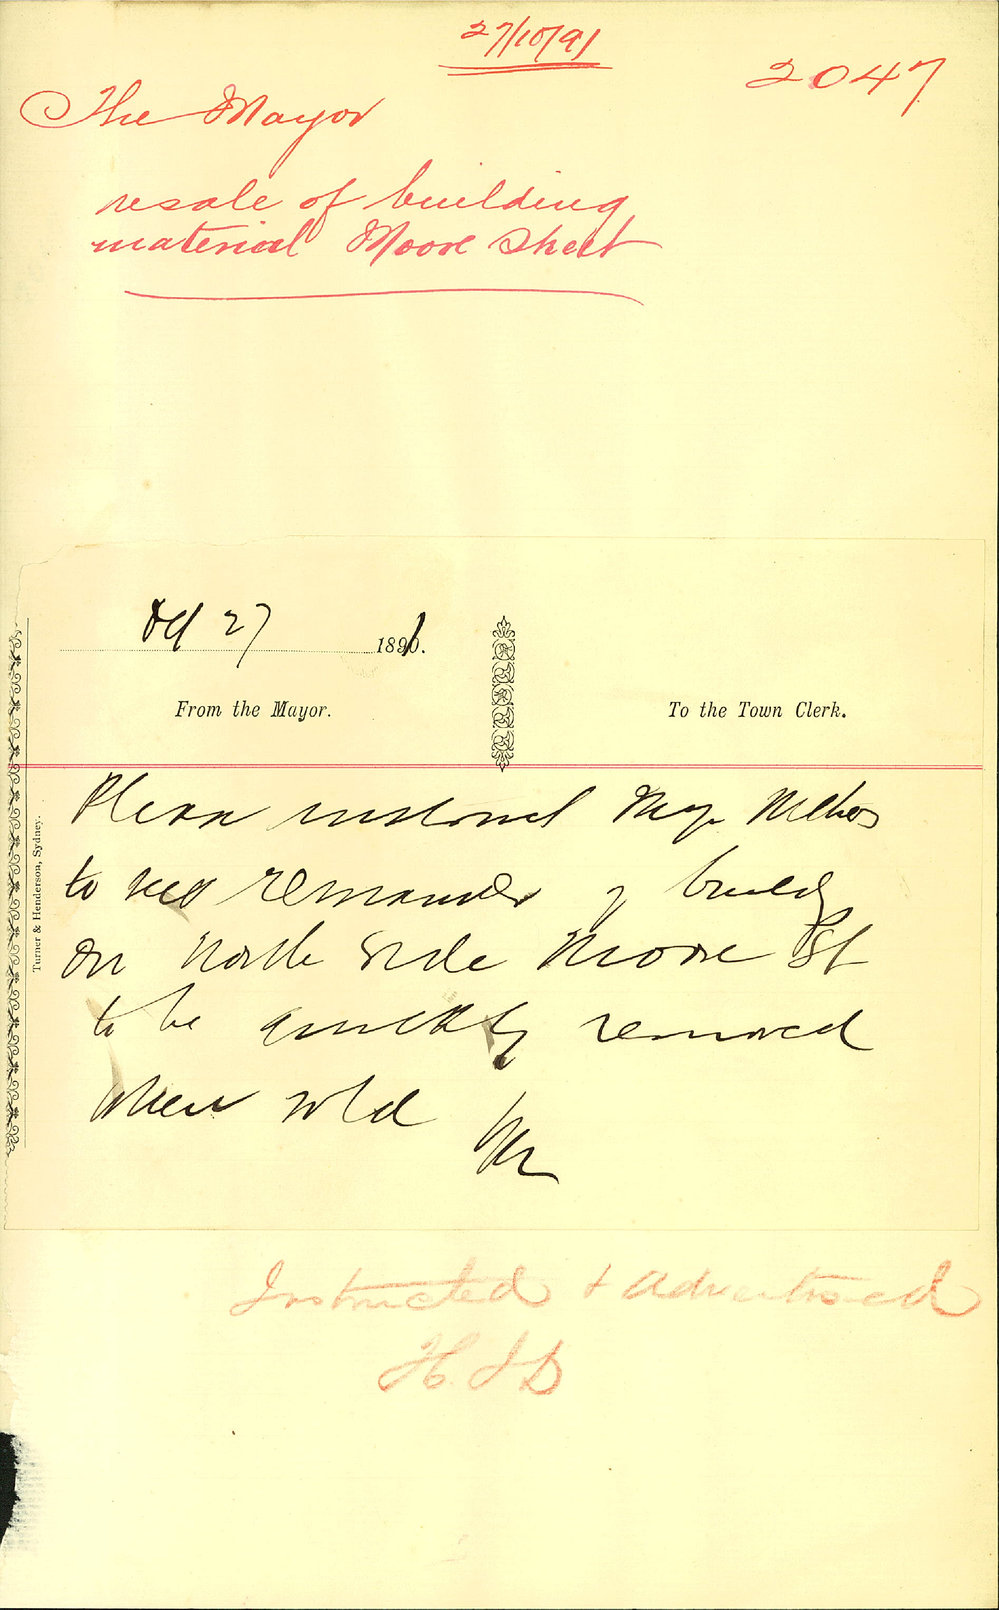 27/10/91
2047
The Mayor
resale of building
material Moore Street
Oct 27 1891.
From the Mayor.
To the Town Clerk.
Turner & Henderson, Sydney.
Please instruct
to remainder of
on North Side Moore St
to be quickly removed
when sold
Instructed & advertised
H. J D